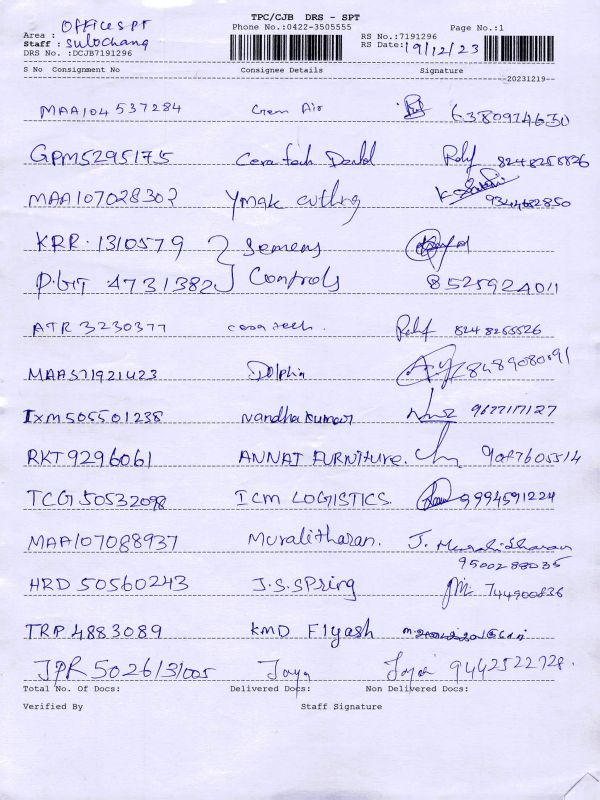 TPC/CJB DRS - SPT
Area : OFFICE SPT
Phone No.:0422-3505555
Page No.:1
Staff : Sulochana
RS No.:7191296
DRS No. :DCJB7191296
RS Date: 19/12/23
S No Consignment No Consignee Details Signature
--20231219--
MAA104 537284 Gem Air 6380974630
GPM5295175 Cera tech Dental 8248255526
MAA107028302 Ymak cutting 9344682850
KRR 1310579 Siemens
PGT 4731382 Controls 8525924011
ATR 3230377 cera tech. 8248255526
MAA571921423 Dolphin 8489080191
IXM505501238 Nandha kumar 9677177127
RKT9296061 ANNAI FURNITURE. 9087605514
TCG50532098 ICM LOGISTICS. 9994591224
MAA107088937 Muralitharan. J. Muralidharan
9500288035
HRD 50560243 J.S.SPring 744900836
TRP 4883089 KMD Flyash
JPR 5026131005 Jaya Jaya 9442522728.
Total No. Of Docs: Delivered Docs: Non Delivered Docs:
Verified By Staff Signature